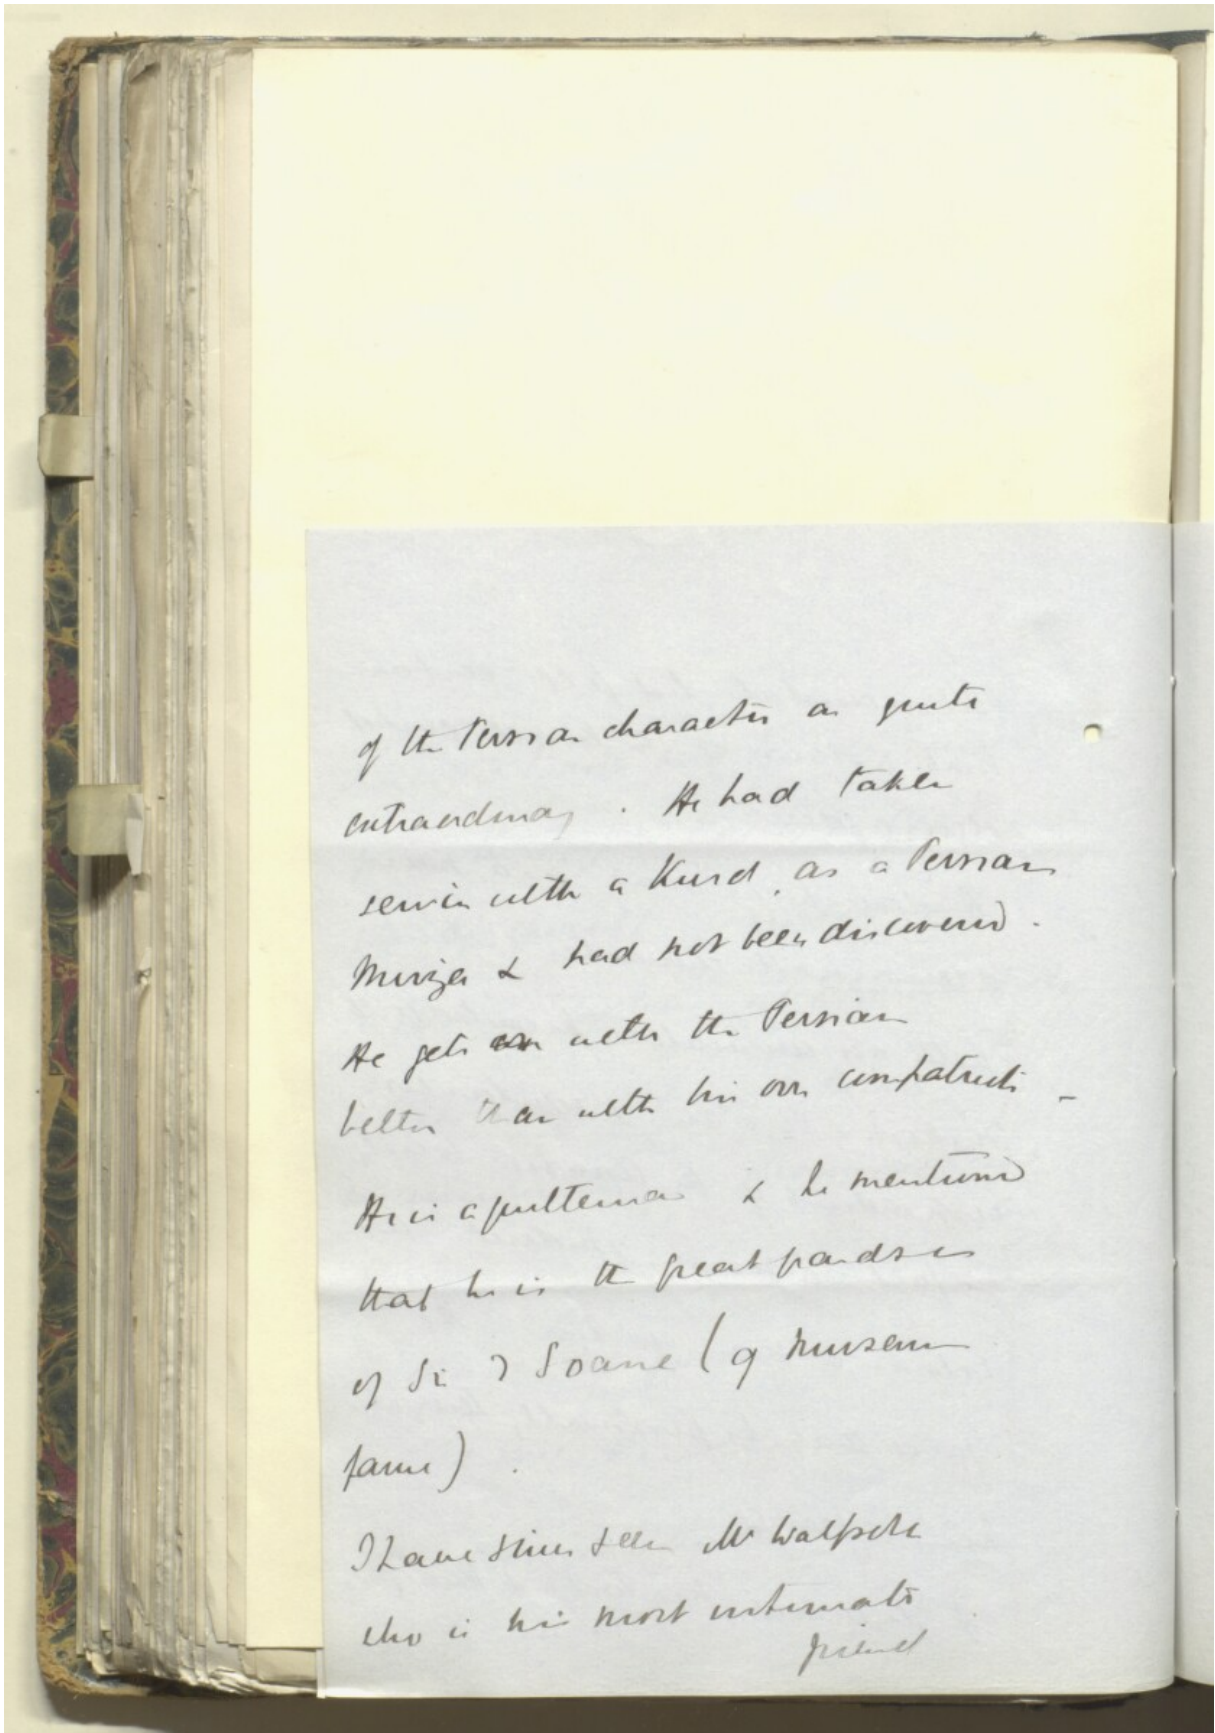 of the Persian character are quite
extraordinary. He had taken
service with a Kurd, as a Persian
Mirza & had not been discovered.
He gets on with the Persian
better than with his own compatriots -
He is a gentleman & he mentioned
that he is the great grandson
of Sir J Soane (of Museum
fame).
I have since seen Mr
who is his most intimate
friend